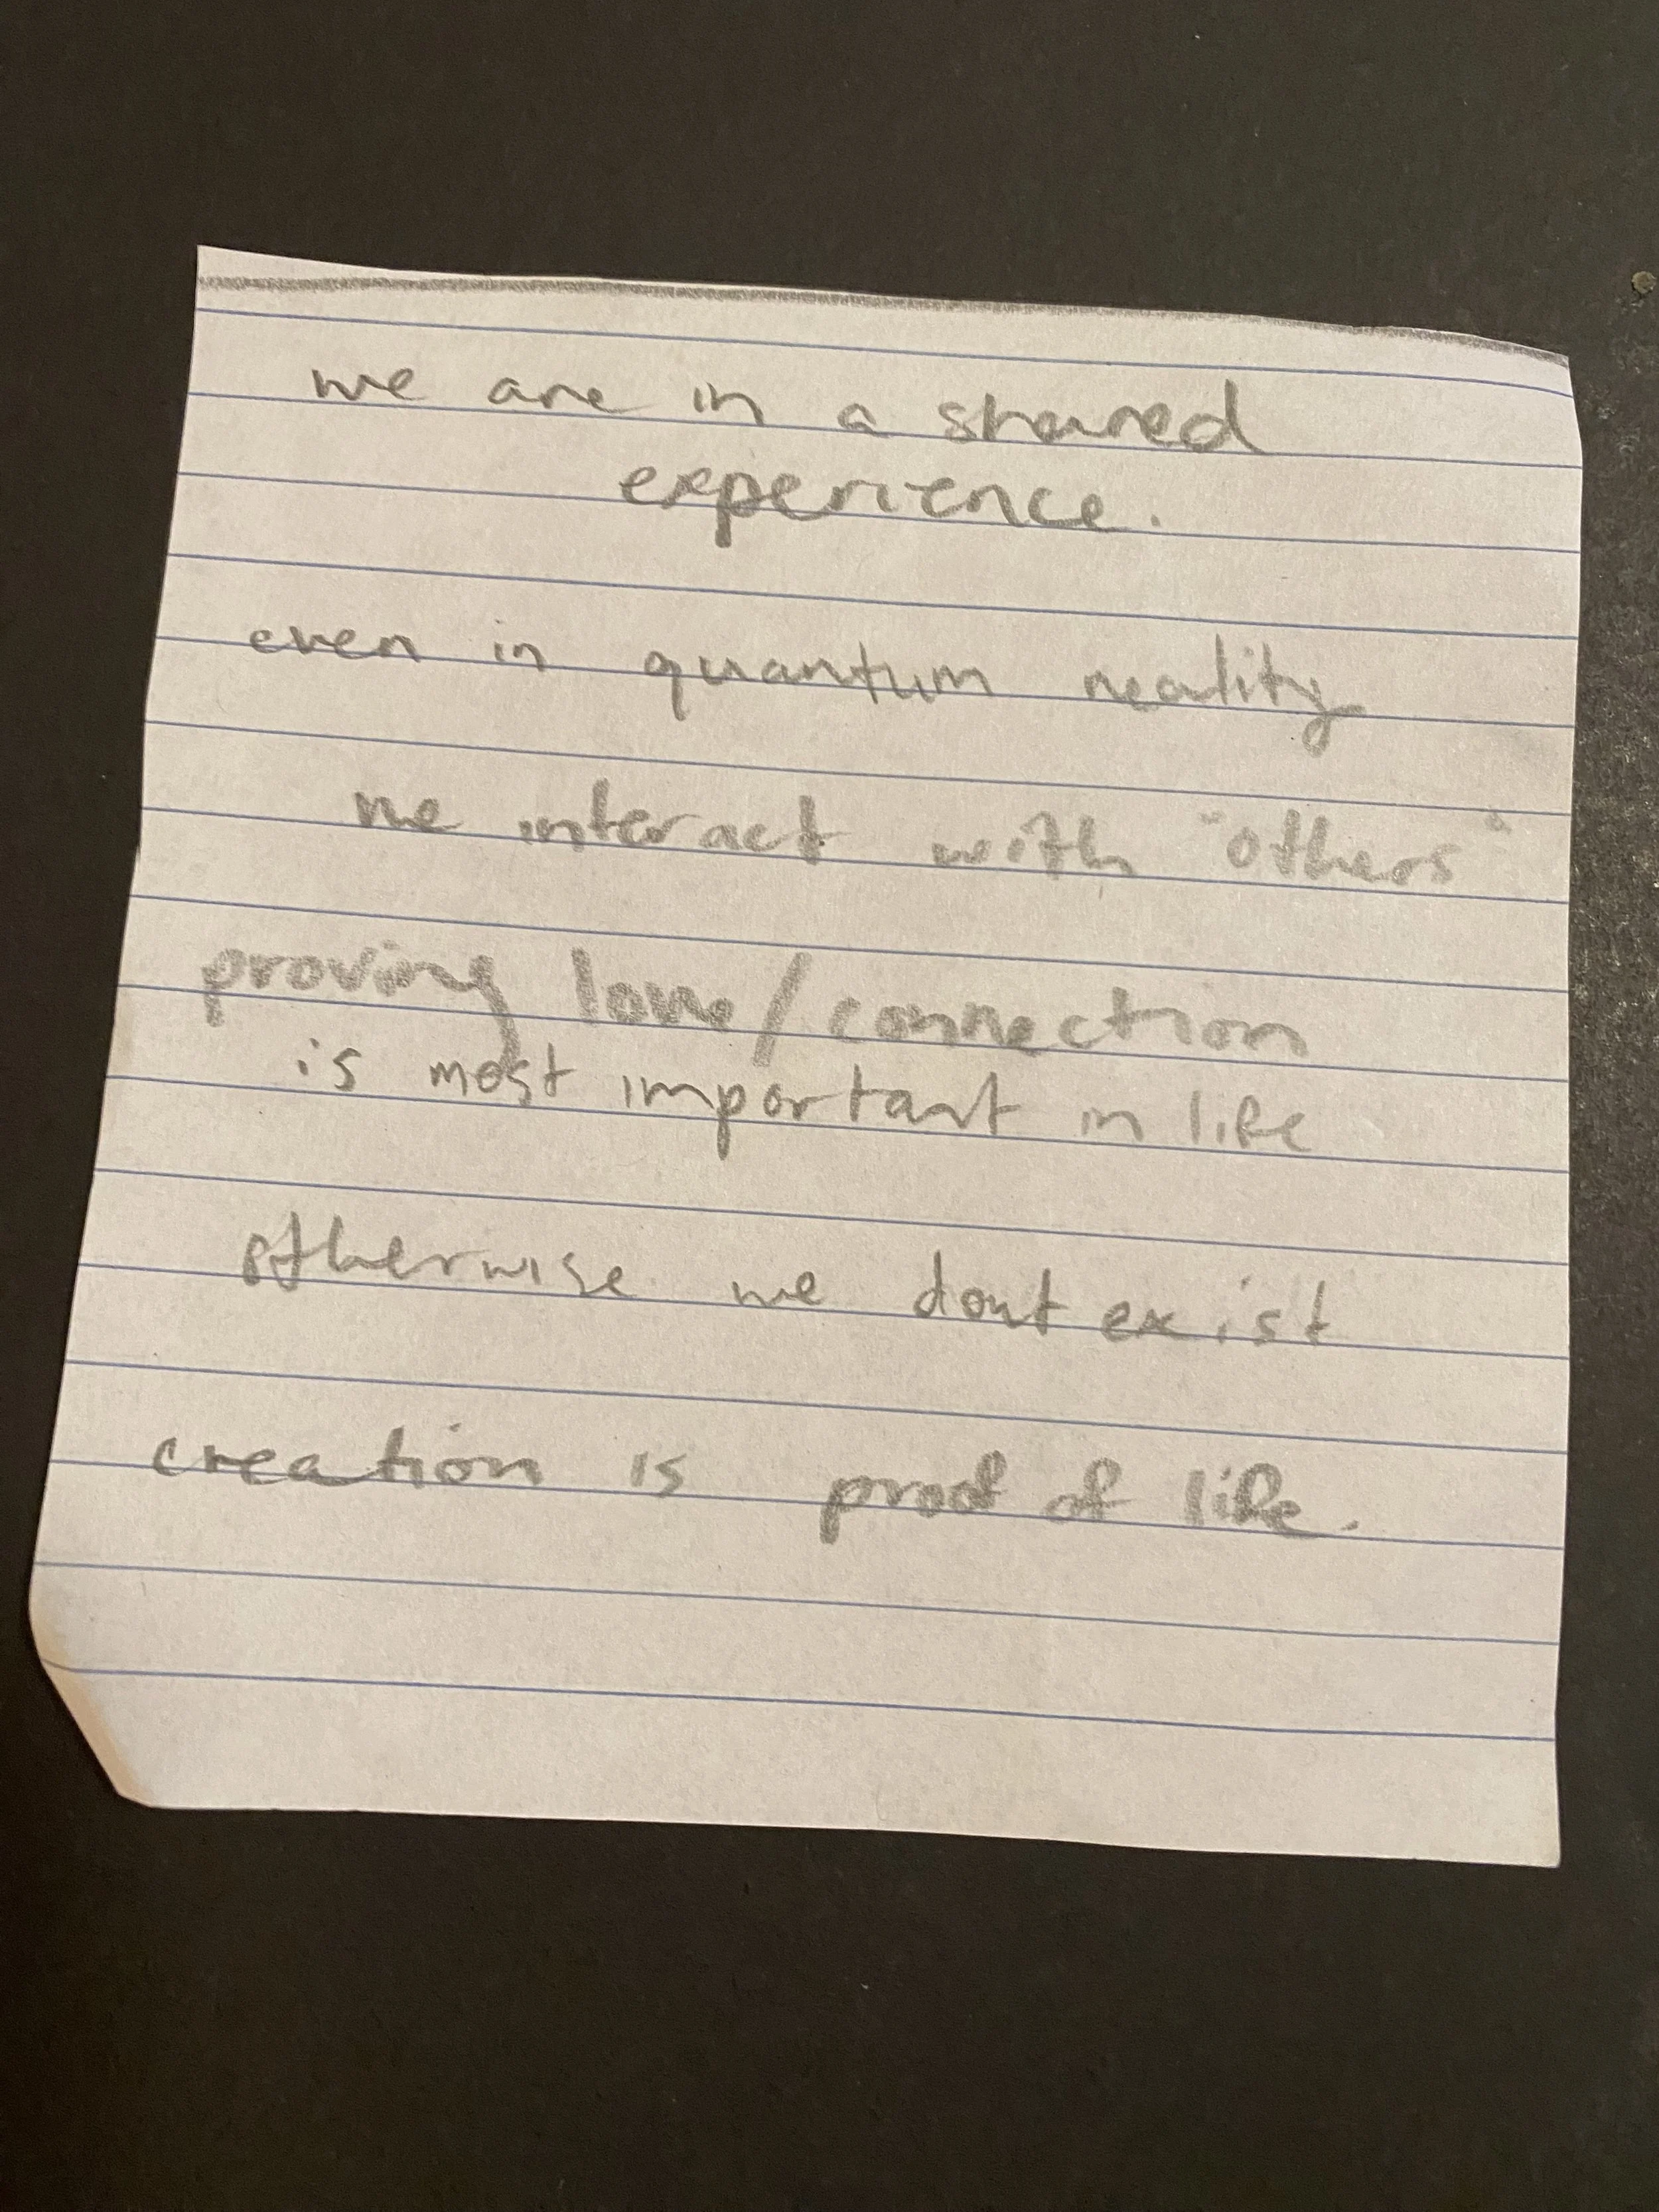 we are in a shared
experience.
even in quantum reality
we interact with "others"
proving love/connection
is most important in life
otherwise we dont exist
creation is proof of life.